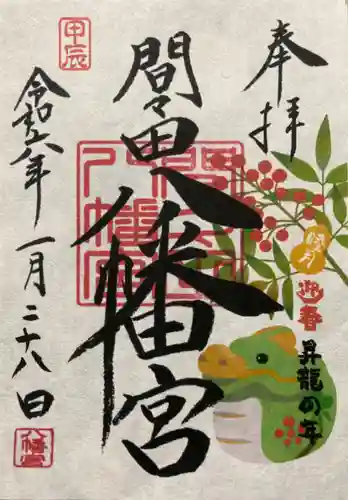 奉拝
睦月
迎春
昇龍の年
間々田八幡宮
甲辰
令和六年一月二十八日
八幡宮